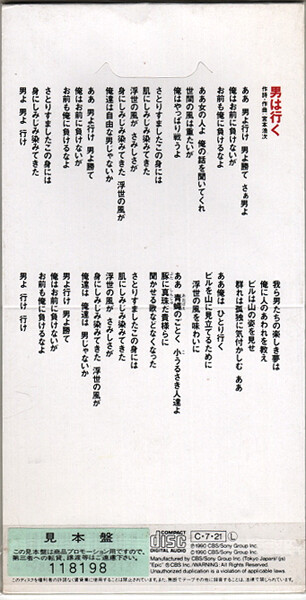 男は行く
作詩・作曲 宮本浩次
ああ 男よ行け 男よ勝て さぁ男よ
俺はお前に負けないが
お前も俺に負けるなよ
ああ女の人よ 俺の話を聞いてくれ
世間の風は重たいが
俺はやっぱり戦うよ
さとりすましたこの身には
肌にしみじみ染みてきた
浮世の風が さみしさが
俺達は自由な男じゃないか
身にしみじみ染みてきた 浮世の風が
ああ 男よ行け 男よ勝て
俺はお前に負けないが
お前も俺に負けるなよ
さとりすましたこの身には
身にしみじみ染みてきた
男よ 男よ 行け
我ら男たちの楽しき夢は
俺に人のあわれを教え
ビルは山の姿を見せ
群れは孤独に気付かしむ ああ
ああ俺は ひとり行く
ビルを山に見立てるために
浮世の風を味わいに
ああ 青蠅のごとく 小うるさき人達よ
豚に真珠だ貴様らに
聞かせる歌などなくなった
さとりすましたこの身には
肌にしみじみ染みてきた
浮世の風が さみしさが
身にしみじみ染みてきた 浮世の風が
俺達は 俺達は 男じゃないか
男よ行け 男よ勝て
俺はお前に負けないが
お前も俺に負けるなよ
男よ 行け
見本盤
この見本盤は商品プロモーション用ですので、
第三者への転貸、譲渡等はご遠慮下さい。
118198
COMPACT
disc
DIGITAL AUDIO
C・7・21 L
Ⓟ1990 CBS/Sony Group Inc.
©1990 CBS/Sony Group Inc.
Manufactured by CBS/Sony Group Inc. (Tokyo Japan)
"Epic" ®CBS Inc./WARNING: All Rights Reserved.
Unauthorized duplication is a violation of applicable laws.